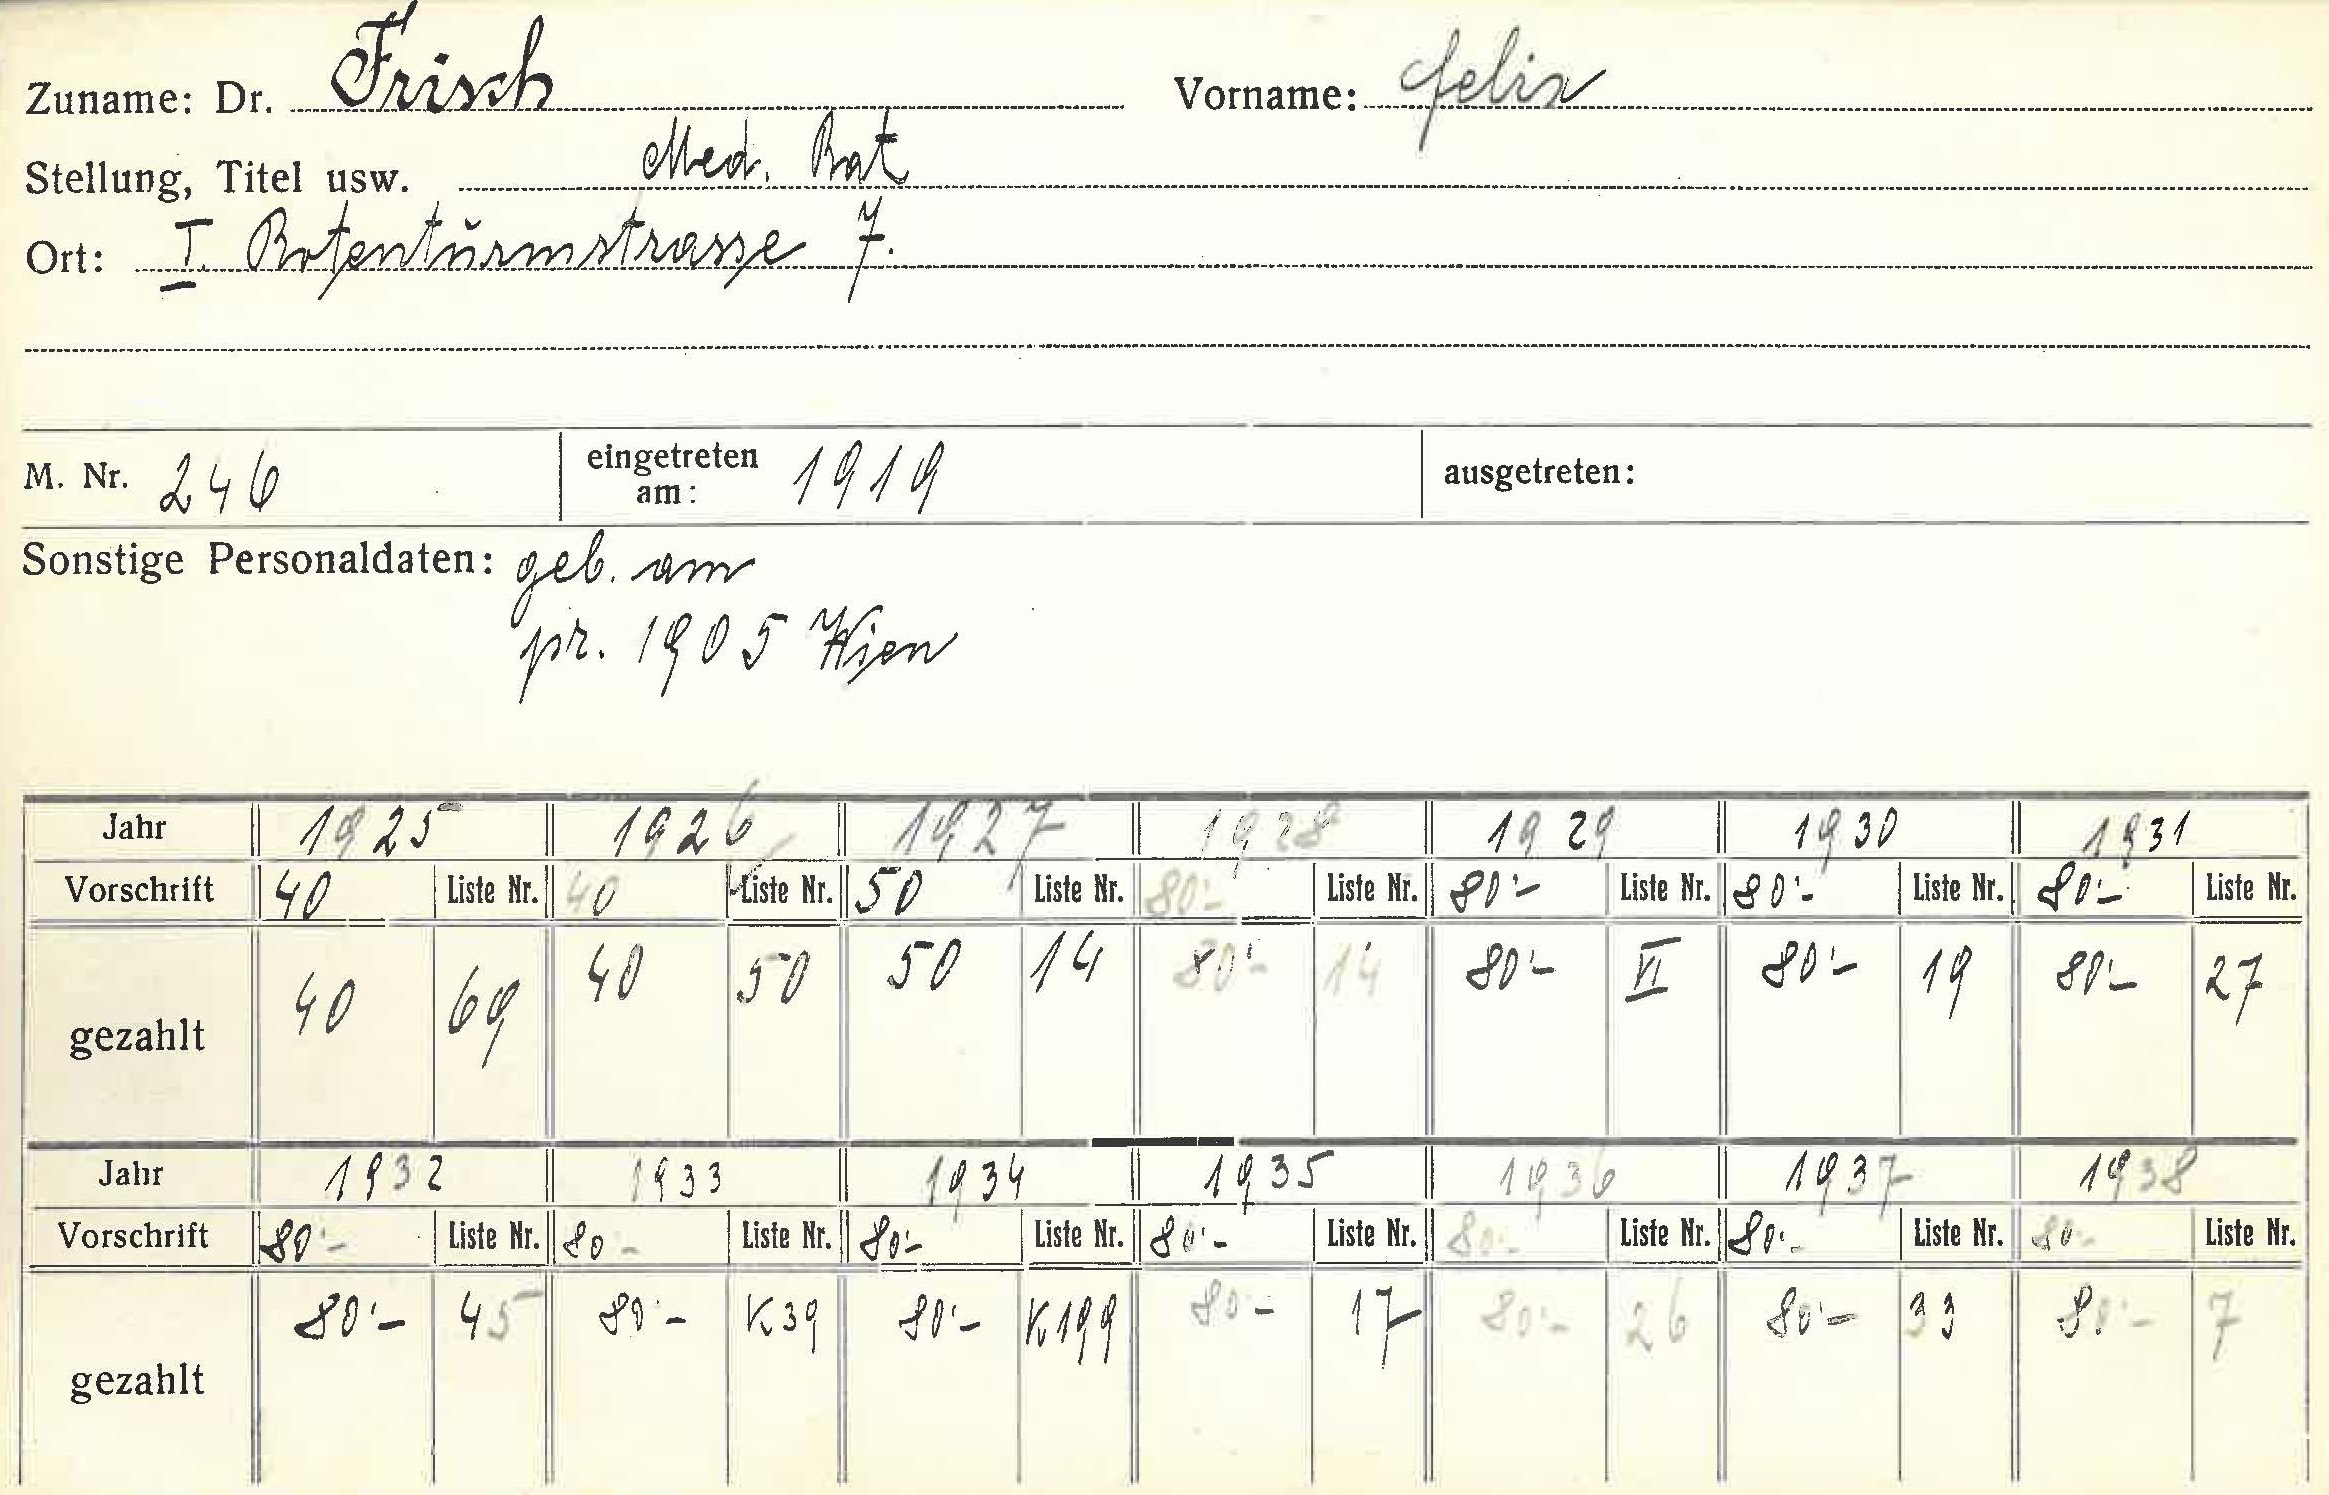 Zuname: Dr. Frisch Vorname: Felix
Stellung, Titel usw. Med. Rat
Ort: I. Rotenturmstrasse 7.
M. Nr. 246 eingetreten am: 1919 ausgetreten:
Sonstige Personaldaten: geb. am
pr. 1905 Wien
Jahr 1925 1926 1927 1928 1929 1930 1931
Vorschrift 40 Liste Nr. 40 Liste Nr. 50 Liste Nr. 80·- Liste Nr. 80·- Liste Nr. 80·- Liste Nr. 80·- Liste Nr.
gezahlt 40 69 40 50 50 14 80·- 14 80·- VI 80·- 19 80·- 27
Jahr 1932 1933 1934 1935 1936 1937 1938
Vorschrift 80·- Liste Nr. 80·- Liste Nr. 80·- Liste Nr. 80·- Liste Nr. 80·- Liste Nr. 80·- Liste Nr. 80·- Liste Nr.
gezahlt 80·- 45 80·- K39 80·- K199 80·- 17 80·- 26 80·- 33 80·- 7